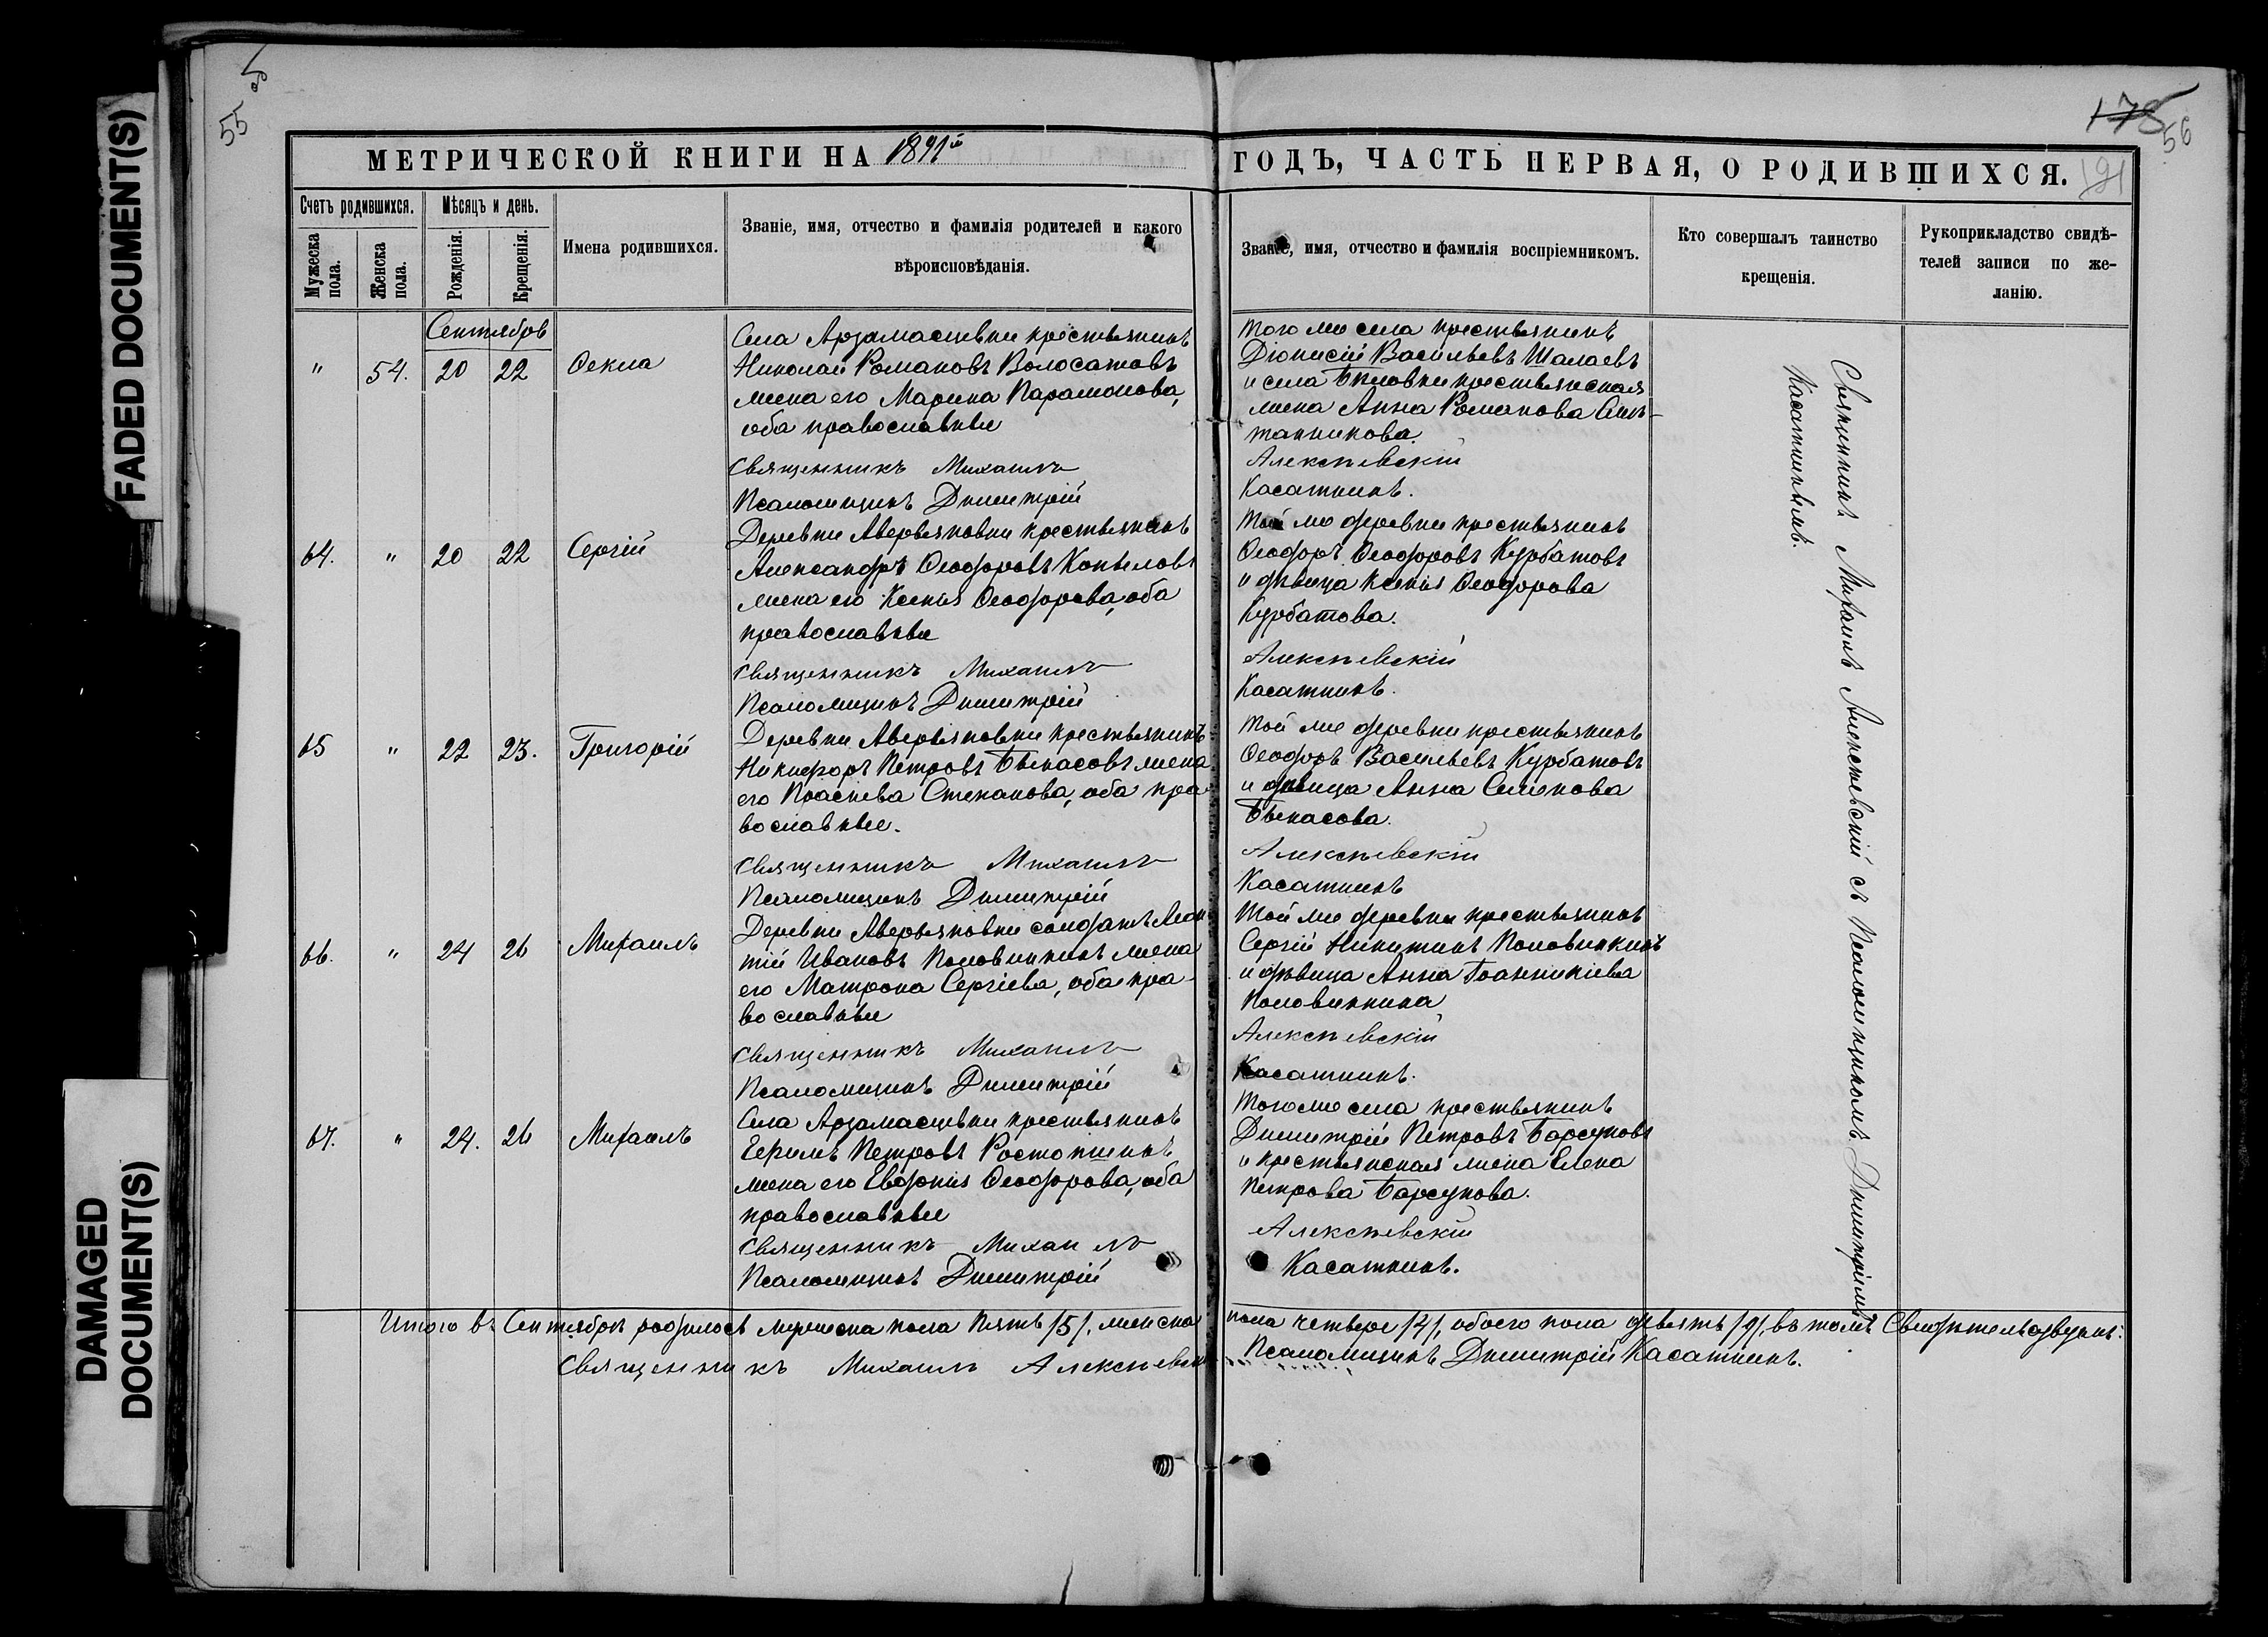 FADED DOCUMENT(S)
DAMAGED
DOCUMENT(S)
55
178
56
191
МЕТРИЧЕСКОЙ КНИГИ НА 1891й
ГОДЪ, ЧАСТЬ ПЕРВАЯ, О РОДИВШИХСЯ.
Счетъ родившихся.
Мѣсяцъ и день.
Мужеска пола.
Женска пола.
Рожденія.
Крещенія.
Имена родившихся.
Званіе, имя, отчество и фамилія родителей и какого
вѣроисповѣданія.
Званіе, имя, отчество и фамилія воспріемникомъ.
Кто совершалъ таинство
крещенія.
Рукоприкладство свидѣ-
телей записи по же-
ланію.
Сентябрь
" 54. 20 22 Ѳекла
Села Арзамасцевки крестьянинъ
Николай Романовъ Волосатовъ
жена его Марина Парамонова,
оба православные
Священникъ Михаилъ
Псаломщикъ Димитрій
Того же села крестьянинъ
Діонисій Васильевъ Шалаевъ
и села Бѣловки крестьянская
жена Анна Романова
Алексѣевскій
Касаткинъ.
64. " 20 22 Сергій
Деревни Аверьяновки крестьянинъ
Александръ Ѳеодоровъ Копыловъ
жена его Ксенія Ѳеодорова, оба
православные
Священникъ Михаилъ
Псаломщикъ Димитрій
Той же деревни крестьянинъ
Ѳеодоръ Ѳеодоровъ Курбатовъ
и дѣвица Ксенія Ѳеодорова
Курбатова.
Алексѣевскій
Касаткинъ.
65 " 22 23. Григорій
Деревни Аверьяновки крестьянинъ
Никифоръ Петровъ Бекасовъ жена
его Параскева Степанова, оба пра-
вославные.
Священникъ Михаилъ
Псаломщикъ Димитрій
Той же деревни крестьянинъ
Ѳеодоръ Васильевъ Курбатовъ
и дѣвица Анна Семенова
Бекасова.
Алексѣевскій
Касаткинъ
66. " 24 26 Михаилъ
Деревни Аверьяновки солдатъ Леон-
тій Ивановъ Половинкинъ жена
его Матрона Сергіева, оба пра-
вославные
Священникъ Михаилъ
Псаломщикъ Димитрій
Той же деревни крестьянинъ
Сергій Никитинъ Половинкинъ
и дѣвица Анна Іоанникіева
Половинкина
Алексѣевскій
Касаткинъ.
67. " 24. 26 Михаилъ
Села Арзамасцевки крестьянинъ
Ефимъ Петровъ Ростопшинъ
жена его Евдокія Ѳеодорова, оба
православные
Священникъ Михаилъ
Псаломщикъ Димитрій
Того же села крестьянинъ
Димитрій Петровъ Барсуковъ
и крестьянская жена Елена
Петрова Барсукова.
Алексѣевскій
Касаткинъ.
Священникъ Михаилъ Алексѣевскій съ Псаломщикомъ Димитріемъ
Касаткинымъ.
Итого въ Сентябрѣ родилось мужеска пола пять /5/, женска пола четверо /4/, обоего пола девять /9/, въ томъ Свидѣтельствуемъ:
Священникъ Михаилъ Алексѣевскій Псаломщикъ Димитрій Касаткинъ.